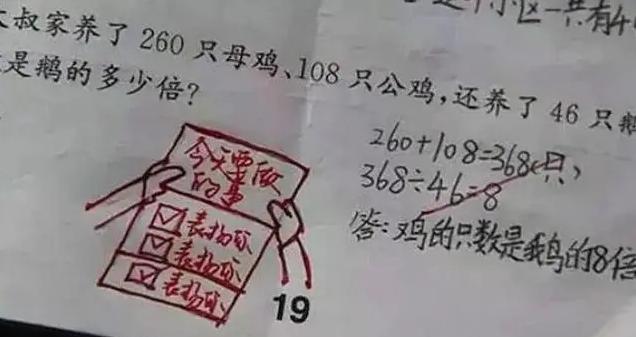 个小区一共有4
叔家养了 260 只母鸡、108 只公鸡，还养了 46 只鹅
是鹅的多少倍？
260+108=368(只)
368÷46=8
答：鸡的只数是鹅的8倍
今天要做
的事
表扬你
表扬你
表扬你
19